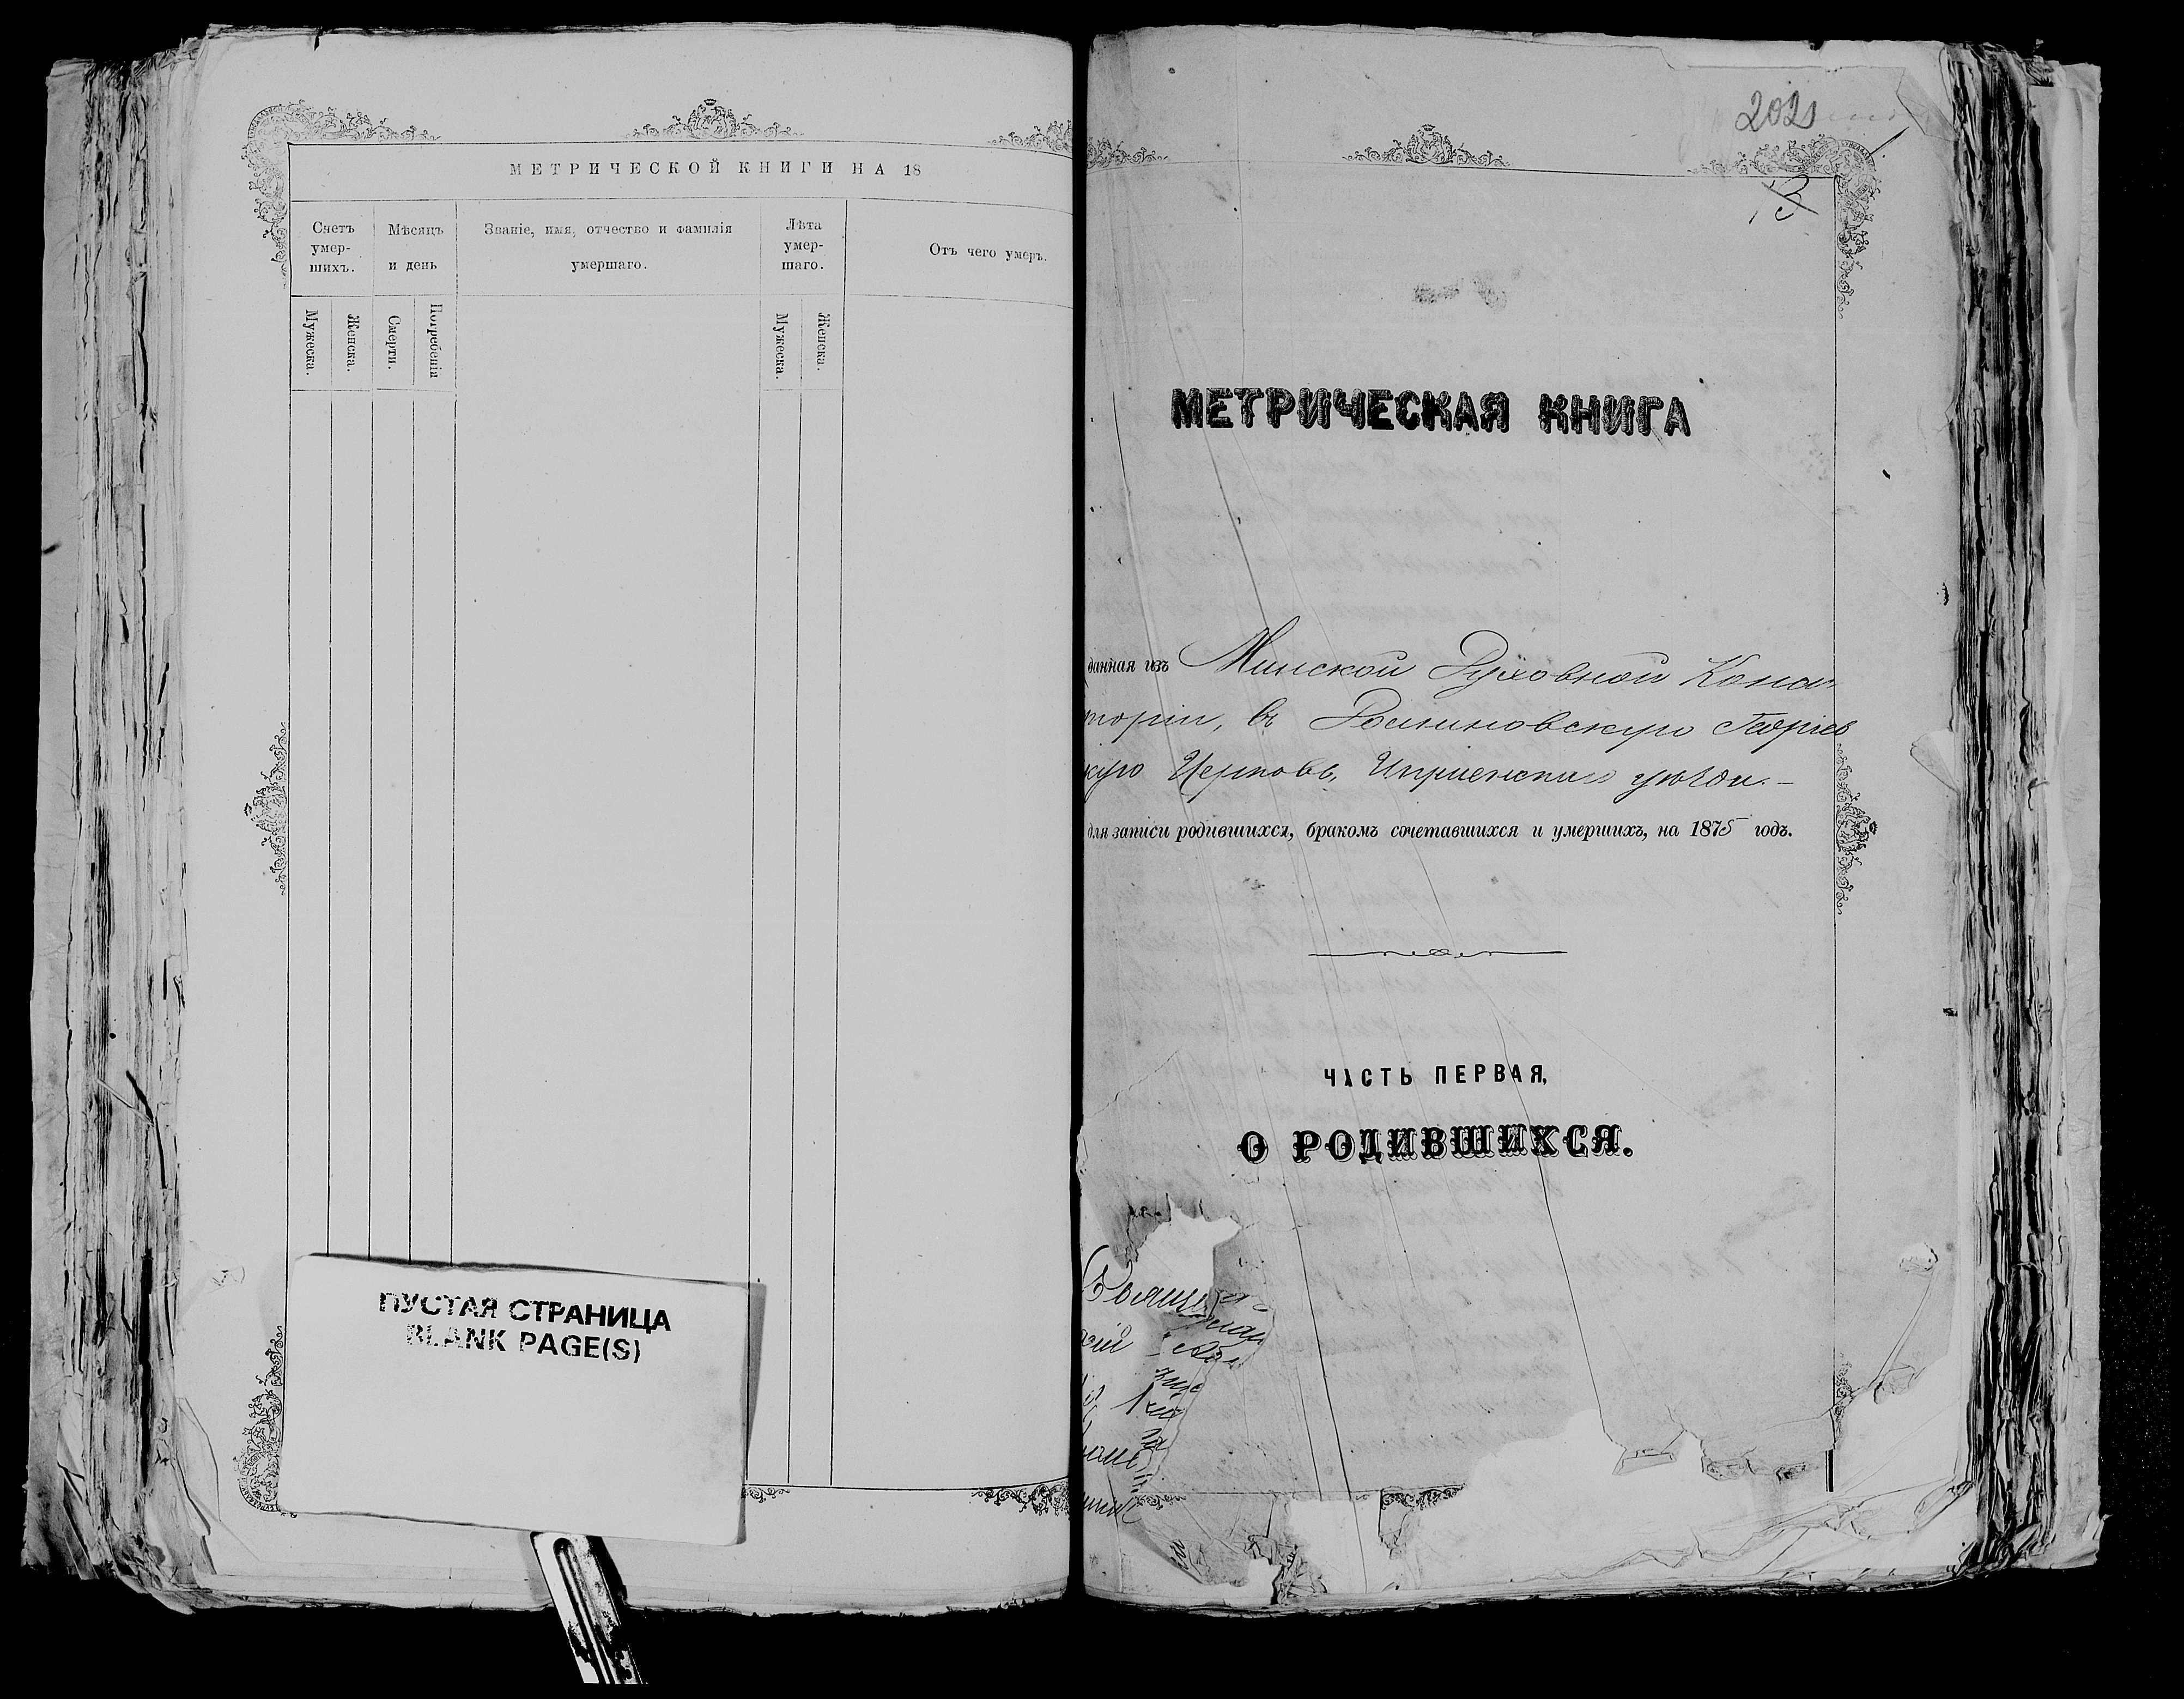 МЕТРИЧЕСКОЙ КНИГИ НА 18
Счетъ умер-шихъ.
Мѣсяцъ и день
Званіе, имя, отчество и фамилія умершаго.
Лѣта умер-шаго.
Отъ чего умеръ.
Мужеска.
Женска.
Смерти.
Погребенія
Мужеска.
Женска.
ПУСТАЯ СТРАНИЦА
BLANK PAGE(S)
202
13
МЕТРИЧЕСКАЯ КНИГА
данная изъ Минской Духовной Конси
торіи, въ Георгіев
скую Церковь, уѣзда.
для записи родившихся, бракомъ сочетавшихся и умершихъ, на 1875 годъ.
ЧАСТЬ ПЕРВАЯ,
О РОДИВШИХСЯ.